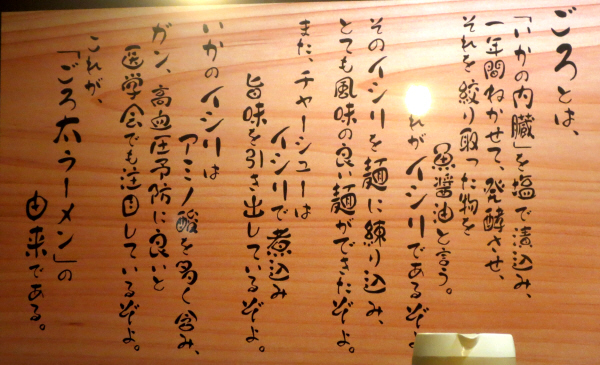 ごろとは、
「いかの内臓」を塩で漬込み、
一年間ねかせて、発酵させ、
それを絞り取った物を
魚醤油と言う。
れがイシリであるぞよ
そのイシリを麺に練り込み、
とても風味の良い麺ができたぞよ。
また、チャーシューは
イシリで煮込み
旨味を引き出しているぞよ。
いかのイシリは
アミノ酸を多く含み、
ガン、高血圧予防に良いと
医学会でも注目しているぞよ。
これが、
「ごろ太ラーメン」の
由来である。